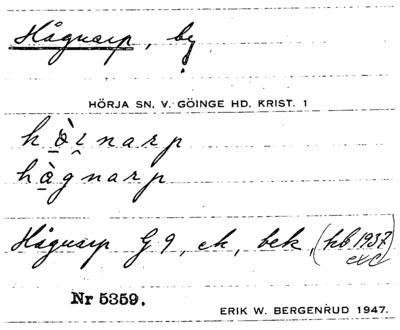 Hågnarp, by
HÖRJA SN, V. GÖINGE HD, KRIST. 1
hò̲i̯narp
hà̲gnarp
Hågnarp G 9, ek, bek, (hb 1937 exc
Nr 5359.
ERIK W. BERGENRUD 1947.